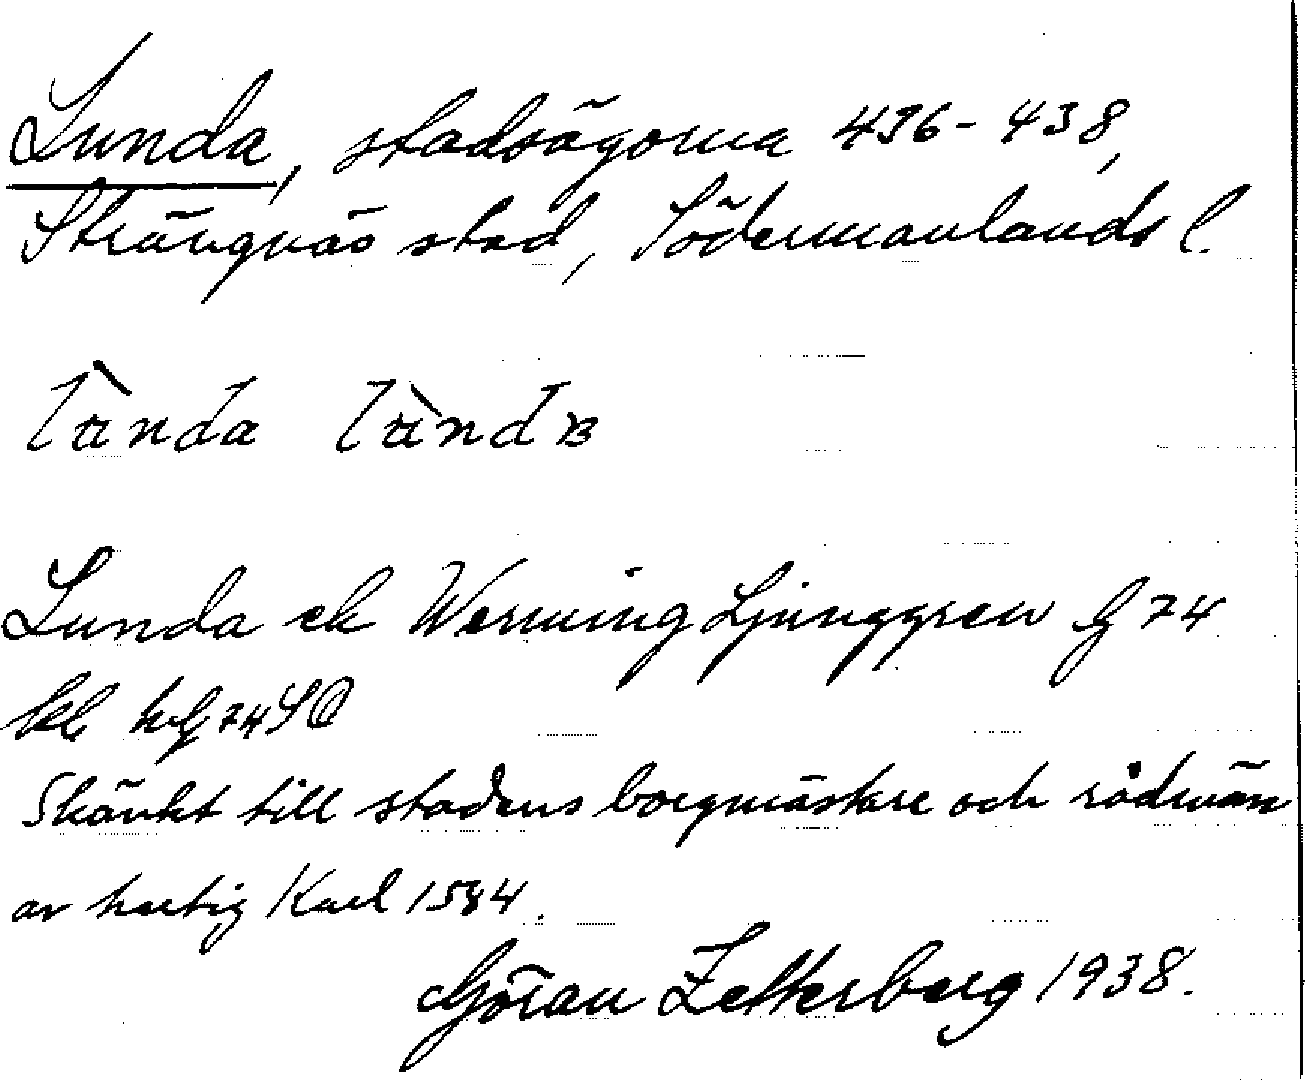 Lunda, stadsägorna 436-438,
Strängnäs stad, Södermanlands l.
Lunda ek Werming Ljunggren G 74
Skänkt till stadens borgmästare och rådmän
av hertig Karl 1584.
Göran Zetterberg 1938.